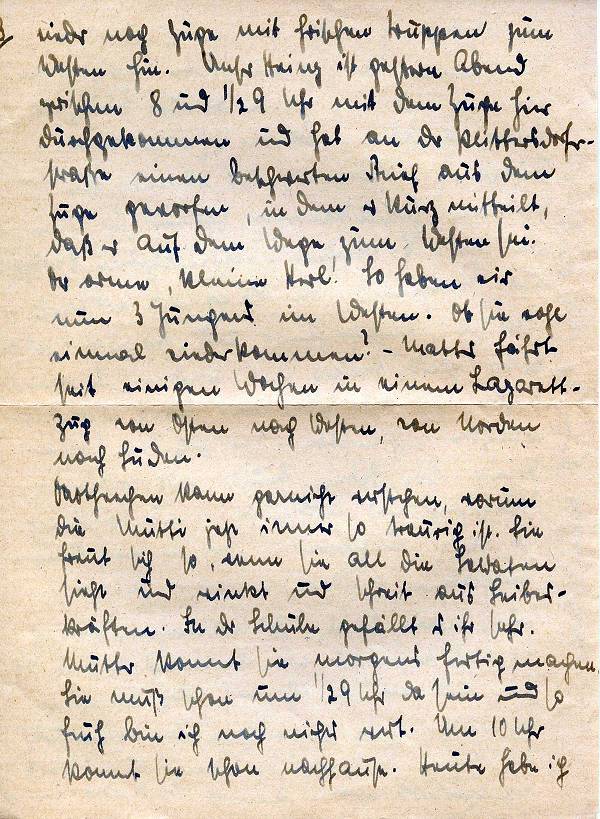 3
wieder noch Züge mit frischen Truppen zum
Westen hin. Unser Heinz ist gestern Abend
zwischen 8 und 1/2 9 Uhr mit dem Zuge hier
durchgekommen und hat an der
straße einen beschwerten Brief aus dem
Zuge geworfen, in dem er kurz mitteilt,
daß er auf dem Wege zum Westen sei.
Der arme, kleine Kerl! So haben wir
nun 3 Jungens im Westen. Ob sie wohl
einmal wiederkommen? - fährt
seit einigen Wochen in einem Lazarett-
zug von Osten nach Westen, von Norden
nach Süden.
kann garnicht verstehen, warum
die Mutti jetzt immer so traurig ist. Sie
freut sich so, wenn sie all die Soldaten
sieht und winkt und schreit aus Leibes-
kräften. In der Schule gefällt es ihr sehr.
Mutter kommt sie morgens fertig machen.
Sie muß schon um 1/2 9 Uhr da sein und so
früh bin ich noch nicht wert. Um 10 Uhr
kommt sie schon nachhause. Heute habe ich